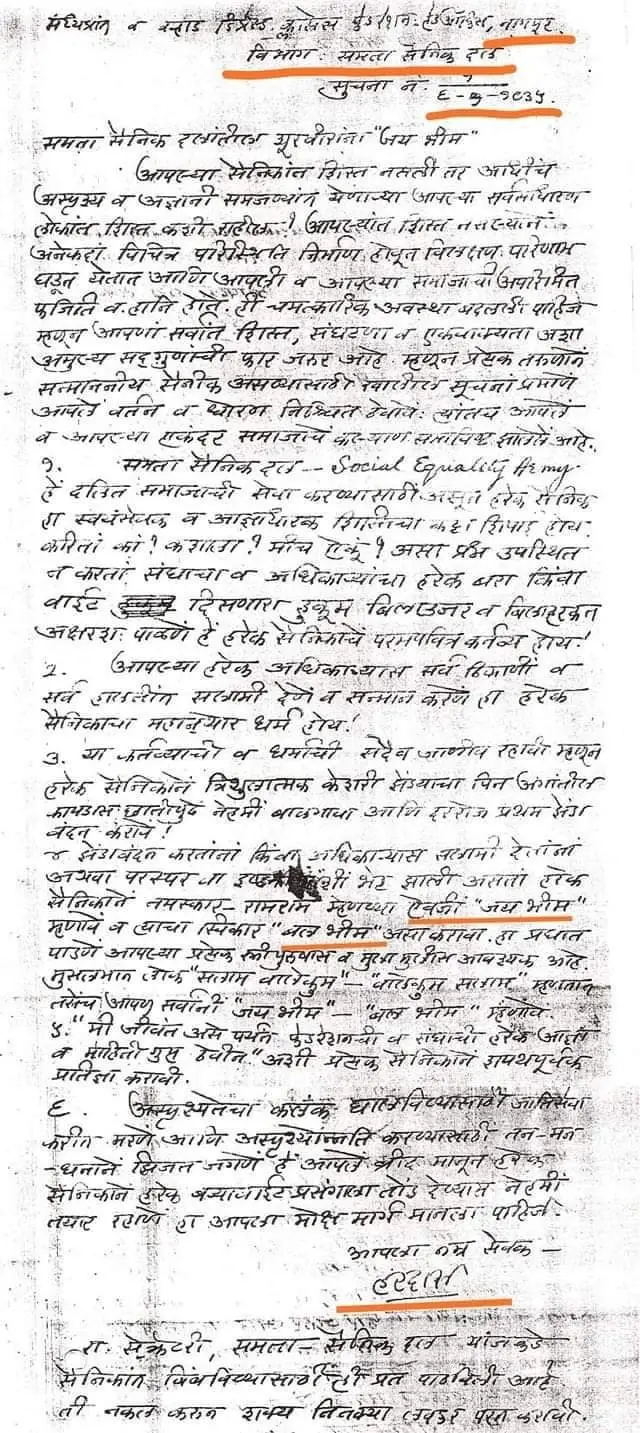 मध्यप्रांत व वऱ्हाड डिप्रेस्ड क्लासेस फेडरेशन: हेड ऑफिस, नागपूर.
विभाग: समता सैनिक दल
सुचना नं. १
६-७-१९३५.
समता सैनिक दलांतील शूरवीरांना "जय भीम"
आपल्या सैनिकांत शिस्त नसली तर आधीच
अस्पृश्य व अज्ञानी समजण्यांत येणाऱ्या आपल्या सर्वसाधारण
लोकांत शिस्त कशी राहील? आपल्यांत शिस्त नसल्यानं
अनेकदां विचित्र परिस्थिति निर्माण होवून विलक्षण परिणाम
घडून येतात आणि आपली व आपल्या समाजाची अपरिमित
फजिति व हानि होते. ही चमत्कारिक अवस्था बदलली पाहिजे
म्हणून आपणां सर्वांत शिस्त, संघटणा व एकवाक्यता अशा
अमुल्य सद्गुणांची फार जरुर आहे. म्हणून प्रत्येक तरुणाने
सन्माननीय सैनीक असण्यासाठी खालील सूचनां प्रमाणें
आपलें वर्तन व धोरण निश्चित ठेवावे: त्यांतच आपलें
व आपल्या एकंदर समाजाचे कल्याण समाविष्ट झालेलें आहे.
१. समता सैनिक दल -- Social Equality Army
हें दलित समाजाची सेवा करण्यासाठीं असून हरेक सैनिक
हा स्वयंसेवक व आज्ञाधारक शिस्तीचा कट्टा शिपाई होय.
करितां कां? कशाला? मीच ऐकूं? असा प्रश्न उपस्थित
न करतां संघाचा व अधिकाऱ्यांचा हरेक बरा किंवा
वाईट दिसणारा हुकूम बिलाउजर व बिलाहरकत
अक्षरशः पाळणे हें हरेक सैनिकाचें परमपवित्र कर्तव्य होय!
2. आपल्या हरेक अधिकाऱ्यास सर्व ठिकाणीं व
सर्व हालतींत सलामी देणें व सन्मान करणें हा हरेक
सैनिकाचा धर्म होय!
3. या कर्तव्याची व धर्माची सदैव जाणीव रहावी म्हणून
हरेक सैनिकाने त्रिशुलात्मक केशरी झेंड्याचा पिन अंगांतील
कापडास छातीपुढे नेहमीं बाळगावा आणि दररोज प्रथम झेंडा
वंदन करावें!
४ झेंडावंदन करतांनां किंवा अधिकाऱ्यास सलामी देतांनां
अथवा परस्पर वा भेट झाली असतां हरेक
सैनिकानें नमस्कार - रामराम म्हणण्या ऐवजीं "जय भीम"
म्हणावें व त्याचा स्विकार "बल भीम" असा करावा. हा प्रघात
पाडणें आपल्या प्रत्येक स्त्रीपुरुषास व मुला मुलींस आवश्यक आहे.
मुसलमान लोक "सलाम वालेकुम" - "वालेकुम सलाम" म्हणतात
तसेंच आपण सर्वांनी "जय भीम" - "बल भीम" म्हणावे.
५. "मी जीवंत असे पर्यंत फेडरेशनची व संघाची हरेक आज्ञा
व माहिती गुप्त ठेवीन." अशी प्रत्येक सैनिकाने शपथपूर्वक
प्रतिज्ञा करावी.
६. अस्पृश्यतेचा कलंक घालविण्यासाठी जातिसेवा
करीत मरणे आणि अस्पृश्योन्नति करण्यासाठी तन-मन
-धनानें झिजत जगणें हें आपलें ब्रीद मानून हरेक
सैनिकानें हरेक बऱ्यावाईट प्रसंगाला तोंड देण्यास नेहमीं
तयार रहाणे हा आपला मोक्ष मार्ग मानला पाहिजे.
आपला नम्र सेवक -
हरदास
रा. सेक्रेटरी, समता - सैनिक दल यांजकडे
सैनिकांत ही प्रत पाठविली आहे
ती नकल करुन शक्य तितक्या लवकर परत करावी.